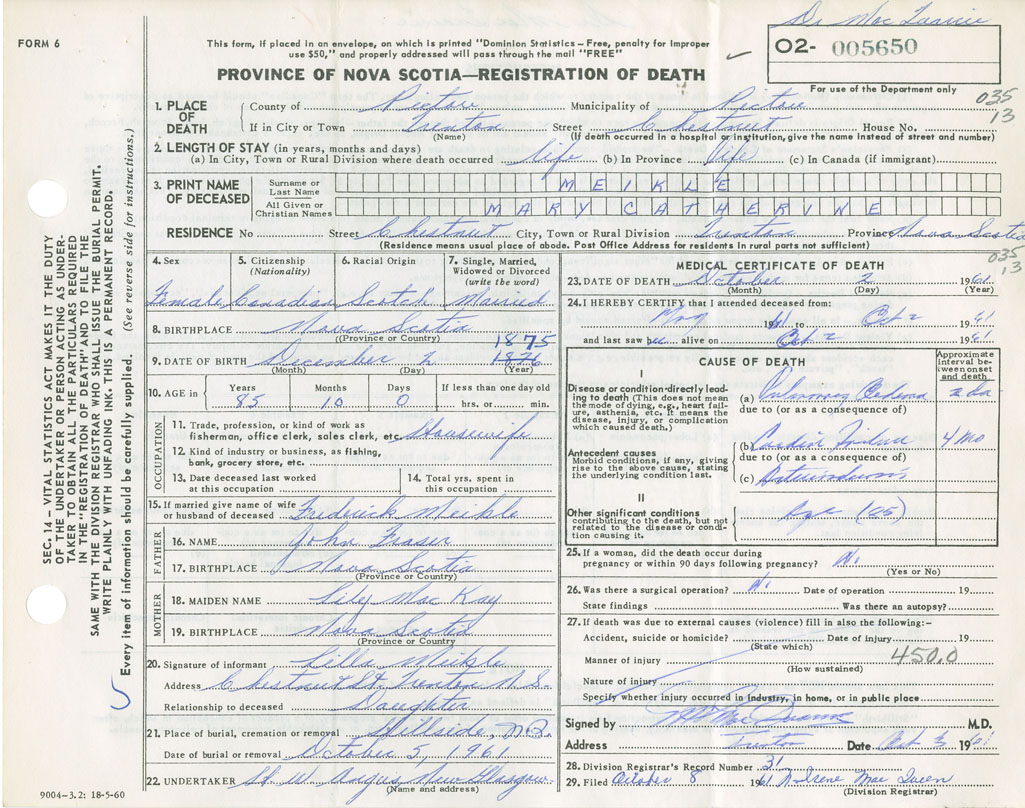 Dr Mac
FORM 6
This form, if placed in an envelope, on which is printed "Dominion Statistics – Free, penalty for improper
use $50," and properly addressed will pass through the mail "FREE"
O2- 005650
PROVINCE OF NOVA SCOTIA—REGISTRATION OF DEATH
For use of the Department only
035
13
1. PLACE OF DEATH
County of Pictou Municipality of Pictou
If in City or Town Trenton Street Chestnut House No.
(Name) (If death occurred in a hospital or institution, give the name instead of street and number)
2. LENGTH OF STAY (in years, months and days)
(a) In City, Town or Rural Division where death occurred life (b) In Province life (c) In Canada (if immigrant)
3. PRINT NAME OF DECEASED
Surname or Last Name MEIKLE
All Given or Christian Names MARY CATHERINE
RESIDENCE No Street Chestnut City, Town or Rural Division Trenton Province Nova Scotia
(Residence means usual place of abode. Post Office Address for residents in rural parts not sufficient)
035
13
4. Sex
Female
5. Citizenship
(Nationality)
Canadian
6. Racial Origin
Scotch
7. Single, Married,
Widowed or Divorced
(write the word)
Married
8. BIRTHPLACE Nova Scotia
(Province or Country)
1875
9. DATE OF BIRTH December 2 1876
(Month) (Day) (Year)
10. AGE in
Years Months Days If less than one day old
85 10 0 hrs. or min.
OCCUPATION
11. Trade, profession, or kind of work as
fisherman, office clerk, sales clerk, etc. Housewife
12. Kind of industry or business, as fishing,
bank, grocery store, etc.
13. Date deceased last worked
at this occupation
14. Total yrs. spent in
this occupation
15. If married give name of wife
or husband of deceased Frederick Meikle
FATHER
16. NAME John Fraser
17. BIRTHPLACE Nova Scotia
(Province or Country)
MOTHER
18. MAIDEN NAME Lily MacKay
19. BIRTHPLACE Nova Scotia
(Province or Country)
20. Signature of informant Lilla Meikle
Address Chestnut St. Trenton N.S.
Relationship to deceased Daughter
21. Place of burial, cremation or removal Hillside,
Date of burial or removal October 5, 1961
22. UNDERTAKER H. W. Angus New Glasgow
(Name and address)
MEDICAL CERTIFICATE OF DEATH
23. DATE OF DEATH October 2 1961
(Month) (Day) (Year)
24. I HEREBY CERTIFY that I attended deceased from:
May 1961 to Oct 2 1961
and last saw her alive on Oct 2 1961
CAUSE OF DEATH
Approximate
interval be-
tween onset
and death
I
Disease or condition directly lead-
ing to death (This does not mean
the mode of dying, e.g., heart failure,
asthenia, etc. It means the
disease, injury, or complication
which caused death.)
(a) Pulmonary Oedema
due to (or as a consequence of)
Antecedent causes
Morbid conditions, if any, giving
rise to the above cause, stating
the underlying condition last.
(b) Cardiac Failure 4 mo
due to (or as a consequence of)
(c)
II
Other significant conditions
contributing to the death, but not
related to the disease or condi-
tion causing it.
Age (85)
25. If a woman, did the death occur during
pregnancy or within 90 days following pregnancy? No.
(Yes or No)
26. Was there a surgical operation? No Date of operation 19
State findings Was there an autopsy?
27. If death was due to external causes (violence) fill in also the following:–
Accident, suicide or homicide? Date of injury 19
(State which)
Manner of injury 450.0
(How sustained)
Nature of injury
Specify whether injury occurred in industry, in home, or in public place
Signed by M.D.
Address Trenton Date Oct 3 1961
28. Division Registrar's Record Number 31
29. Filed October 8 1961 Irene MacQueen
(Division Registrar)
SEC. 14 – VITAL STATISTICS ACT MAKES IT THE DUTY
OF THE UNDERTAKER OR PERSON ACTING AS UNDER-
TAKER TO OBTAIN ALL THE PARTICULARS REQUIRED
IN THE "REGISTRATION OF DEATH" AND TO FILE THE
SAME WITH THE DIVISION REGISTRAR WHO SHALL ISSUE THE BURIAL PERMIT.
WRITE PLAINLY WITH UNFADING INK. THIS IS A PERMANENT RECORD.
Every item of information should be carefully supplied. (See reverse side for instructions.)
5
9004–3.2: 18-5-60